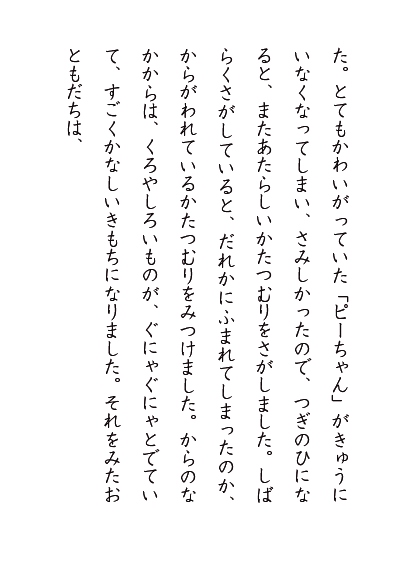 た。とてもかわいがっていた「ピーちゃん」がきゅうに
いなくなってしまい、さみしかったので、つぎのひにな
ると、またあたらしいかたつむりをさがしました。しば
らくさがしていると、だれかにふまれてしまったのか、
からがわれているかたつむりをみつけました。からのな
かからは、くろやしろいものが、ぐにゃぐにゃとでてい
て、すごくかなしいきもちになりました。それをみたお
ともだちは、